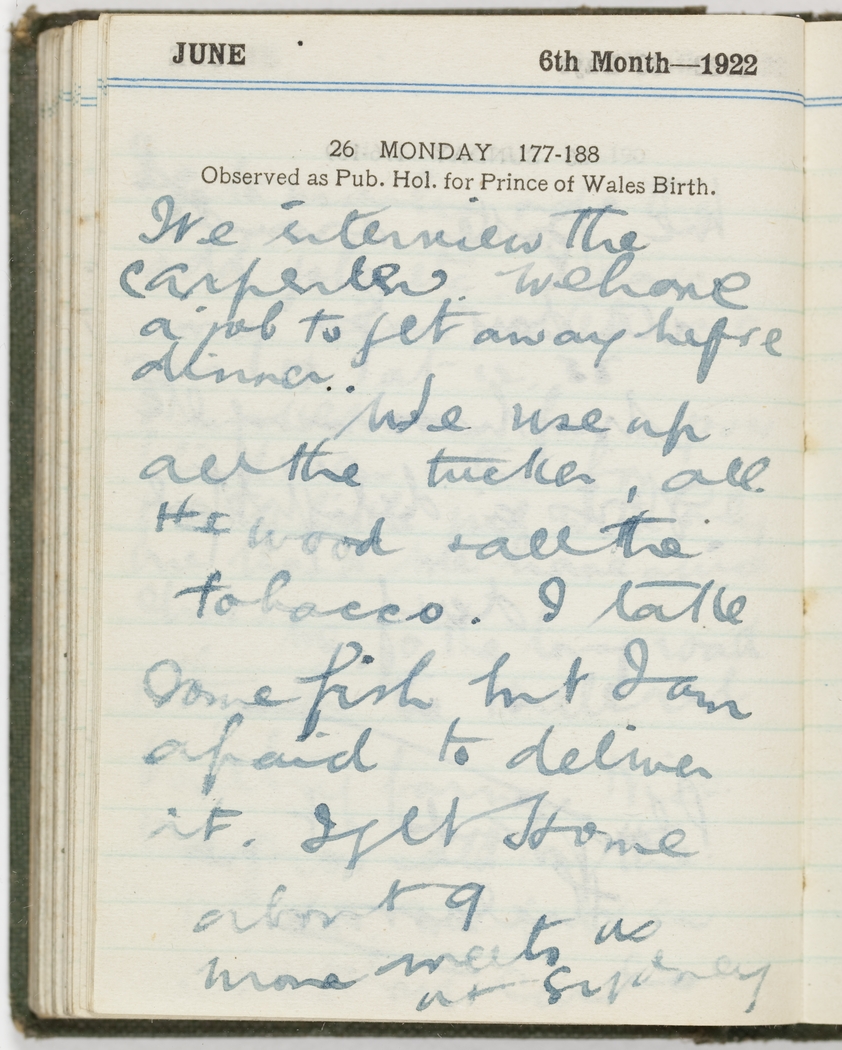 JUNE 6th Month—1922
26 MONDAY 177-188
Observed as Pub. Hol. for Prince of Wales Birth.
We interview the
carpenter. We have
a job to get away before
dinner..
We use up
all the tucker, all
the wood & all the
tobacco. I take
some fish but I am
afraid to deliver
it. I get Home
about 9
meets us
at Sydney